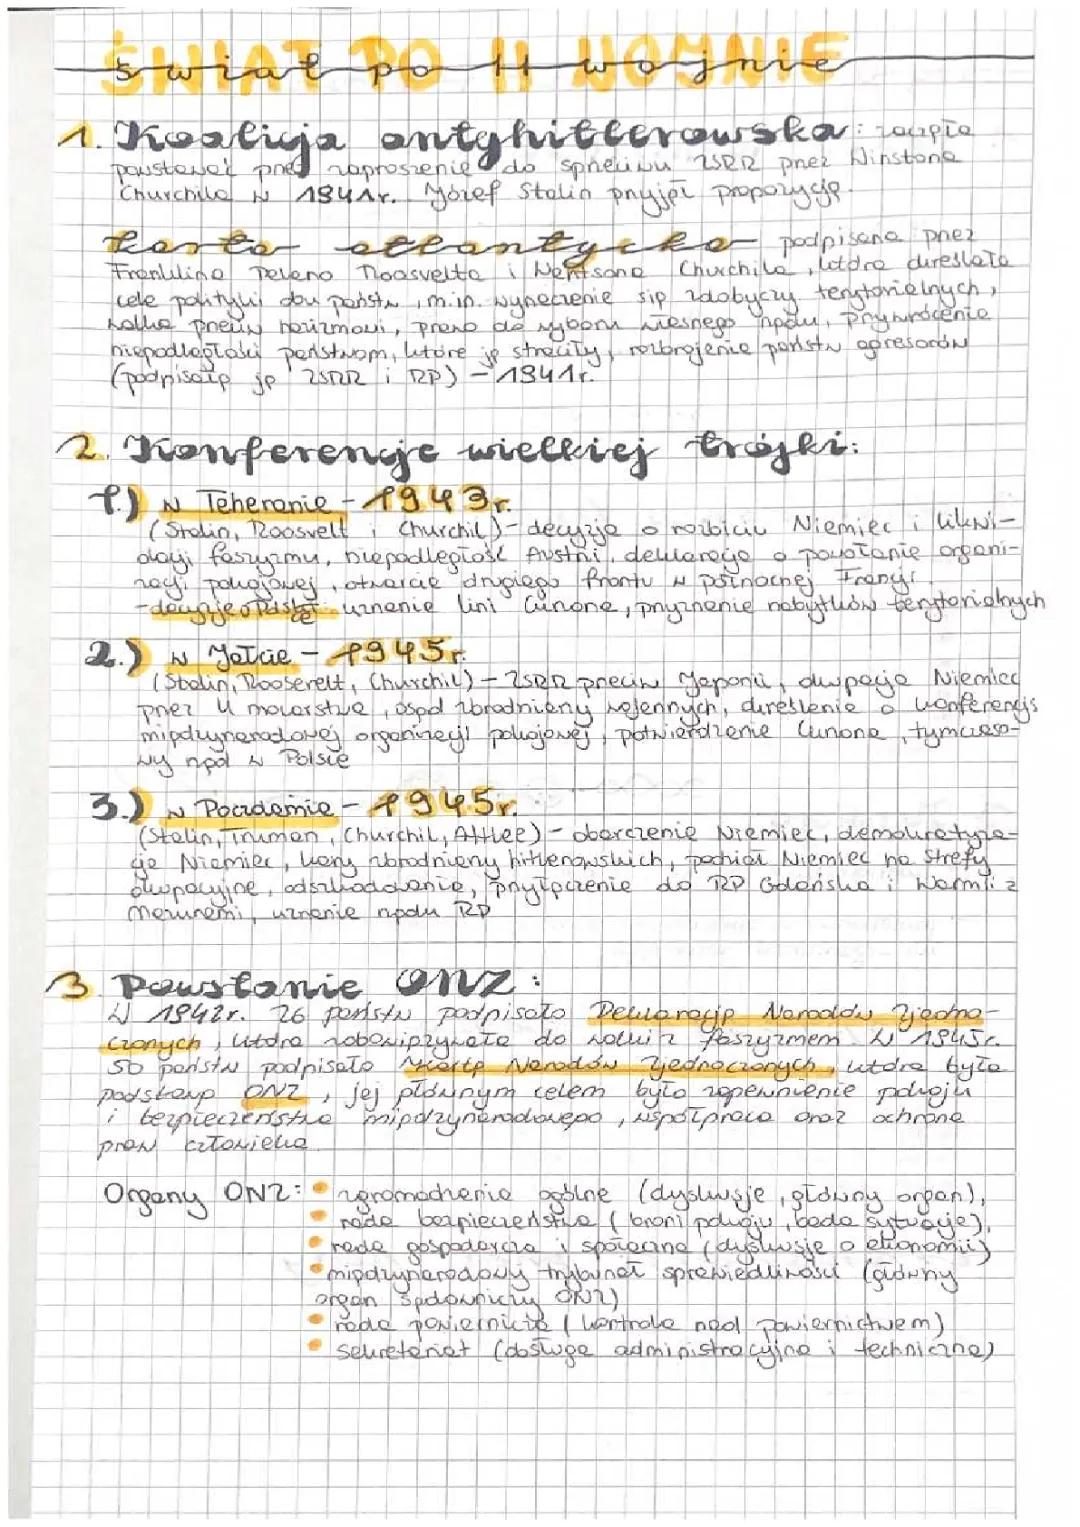 ŚWIAT PO II WOJNIE
świat po II wojnie
1. Koalicja antyhitlerowska: zaczęła
powstawać przez zaproszenie do sprzeciwu ZSRR przez Winstona
Churchila w 1941r. Józef Stalin przyjął propozycję.
Karta atlantycka podpisana przez
Franklina Delano Roosvelta i Churchila, która określała
cele polityki obu państw, m.in. wyrzeczenie się zdobyczy terytorialnych,
walka przeciw nazizmowi, prawo do wyboru własnego rządu, przywrócenie
niepodległości państwom, które ją straciły, rozbrojenie państw agresorów
(podpisały ją ZSRR i RP) - 1941r.
2. Konferencje wielkiej trójki:
1.) w Teheranie - 1943r.
(Stalin, Roosvelt i Churchil) - decyzja o rozbiciu Niemiec i likwi-
dacji faszyzmu, niepodległość Austrii, deklaracja o powołanie organi-
zacji pokojowej, otwarcie drugiego frontu w północnej Francji.
- decyzje o Polsce: uznanie lini Curzona, przyznanie nabytków terytorialnych
2.) w Jałcie - 1945r.
(Stalin, Rooserelt, Churchil) - ZSRR przeciw Japonii, okupacja Niemiec
przez 4 mocarstwa, osąd zbrodniarzy wojennych, określenie o konferencjs
międzynarodowej organizacji pokojowej, potwierdzenie Curzona, tymczaso-
wy rząd w Polsce
3.) w Poczdamie - 1945r.
(Stalin, Truman, Churchil, Attlee) - obarczenie Niemiec, demokratyza-
cja Niemiec, kary zbrodniarzy hitlerowskich, podział Niemiec na strefy
okupacyjne, odszkodowania, przyłączenie do RP Gdańska i Warmii z
Mazurami, uznanie rządu RP
3. Powstanie ONZ:
W 1942r. 26 państw podpisało Deklarację Narodów Zjedno-
czonych, która zobowiązywała do walki z faszyzmem. W 1945r.
50 państw podpisało Kartę Narodów Zjednoczonych, która była
podstawą ONZ, jej głównym celem było zapewnienie pokoju
i bezpieczeństwa międzynarodowego, współpraca oraz ochrona
praw człowieka.
Organy ONZ: • zgromadzenie ogólne (dyskusje, główny organ),
• rada bezpieczeństwa (broni pokoju, bada sytuacje),
• rada gospodarcza i społeczna (dyskusje o ekonomii)
• międzynarodowy trybunał sprawiedliwości (główny
organ sądowniczy ONZ)
• rada powiernicza (kontrola nad powiernictwem)
• sekretariat (obsługa administracyjna i techniczna)